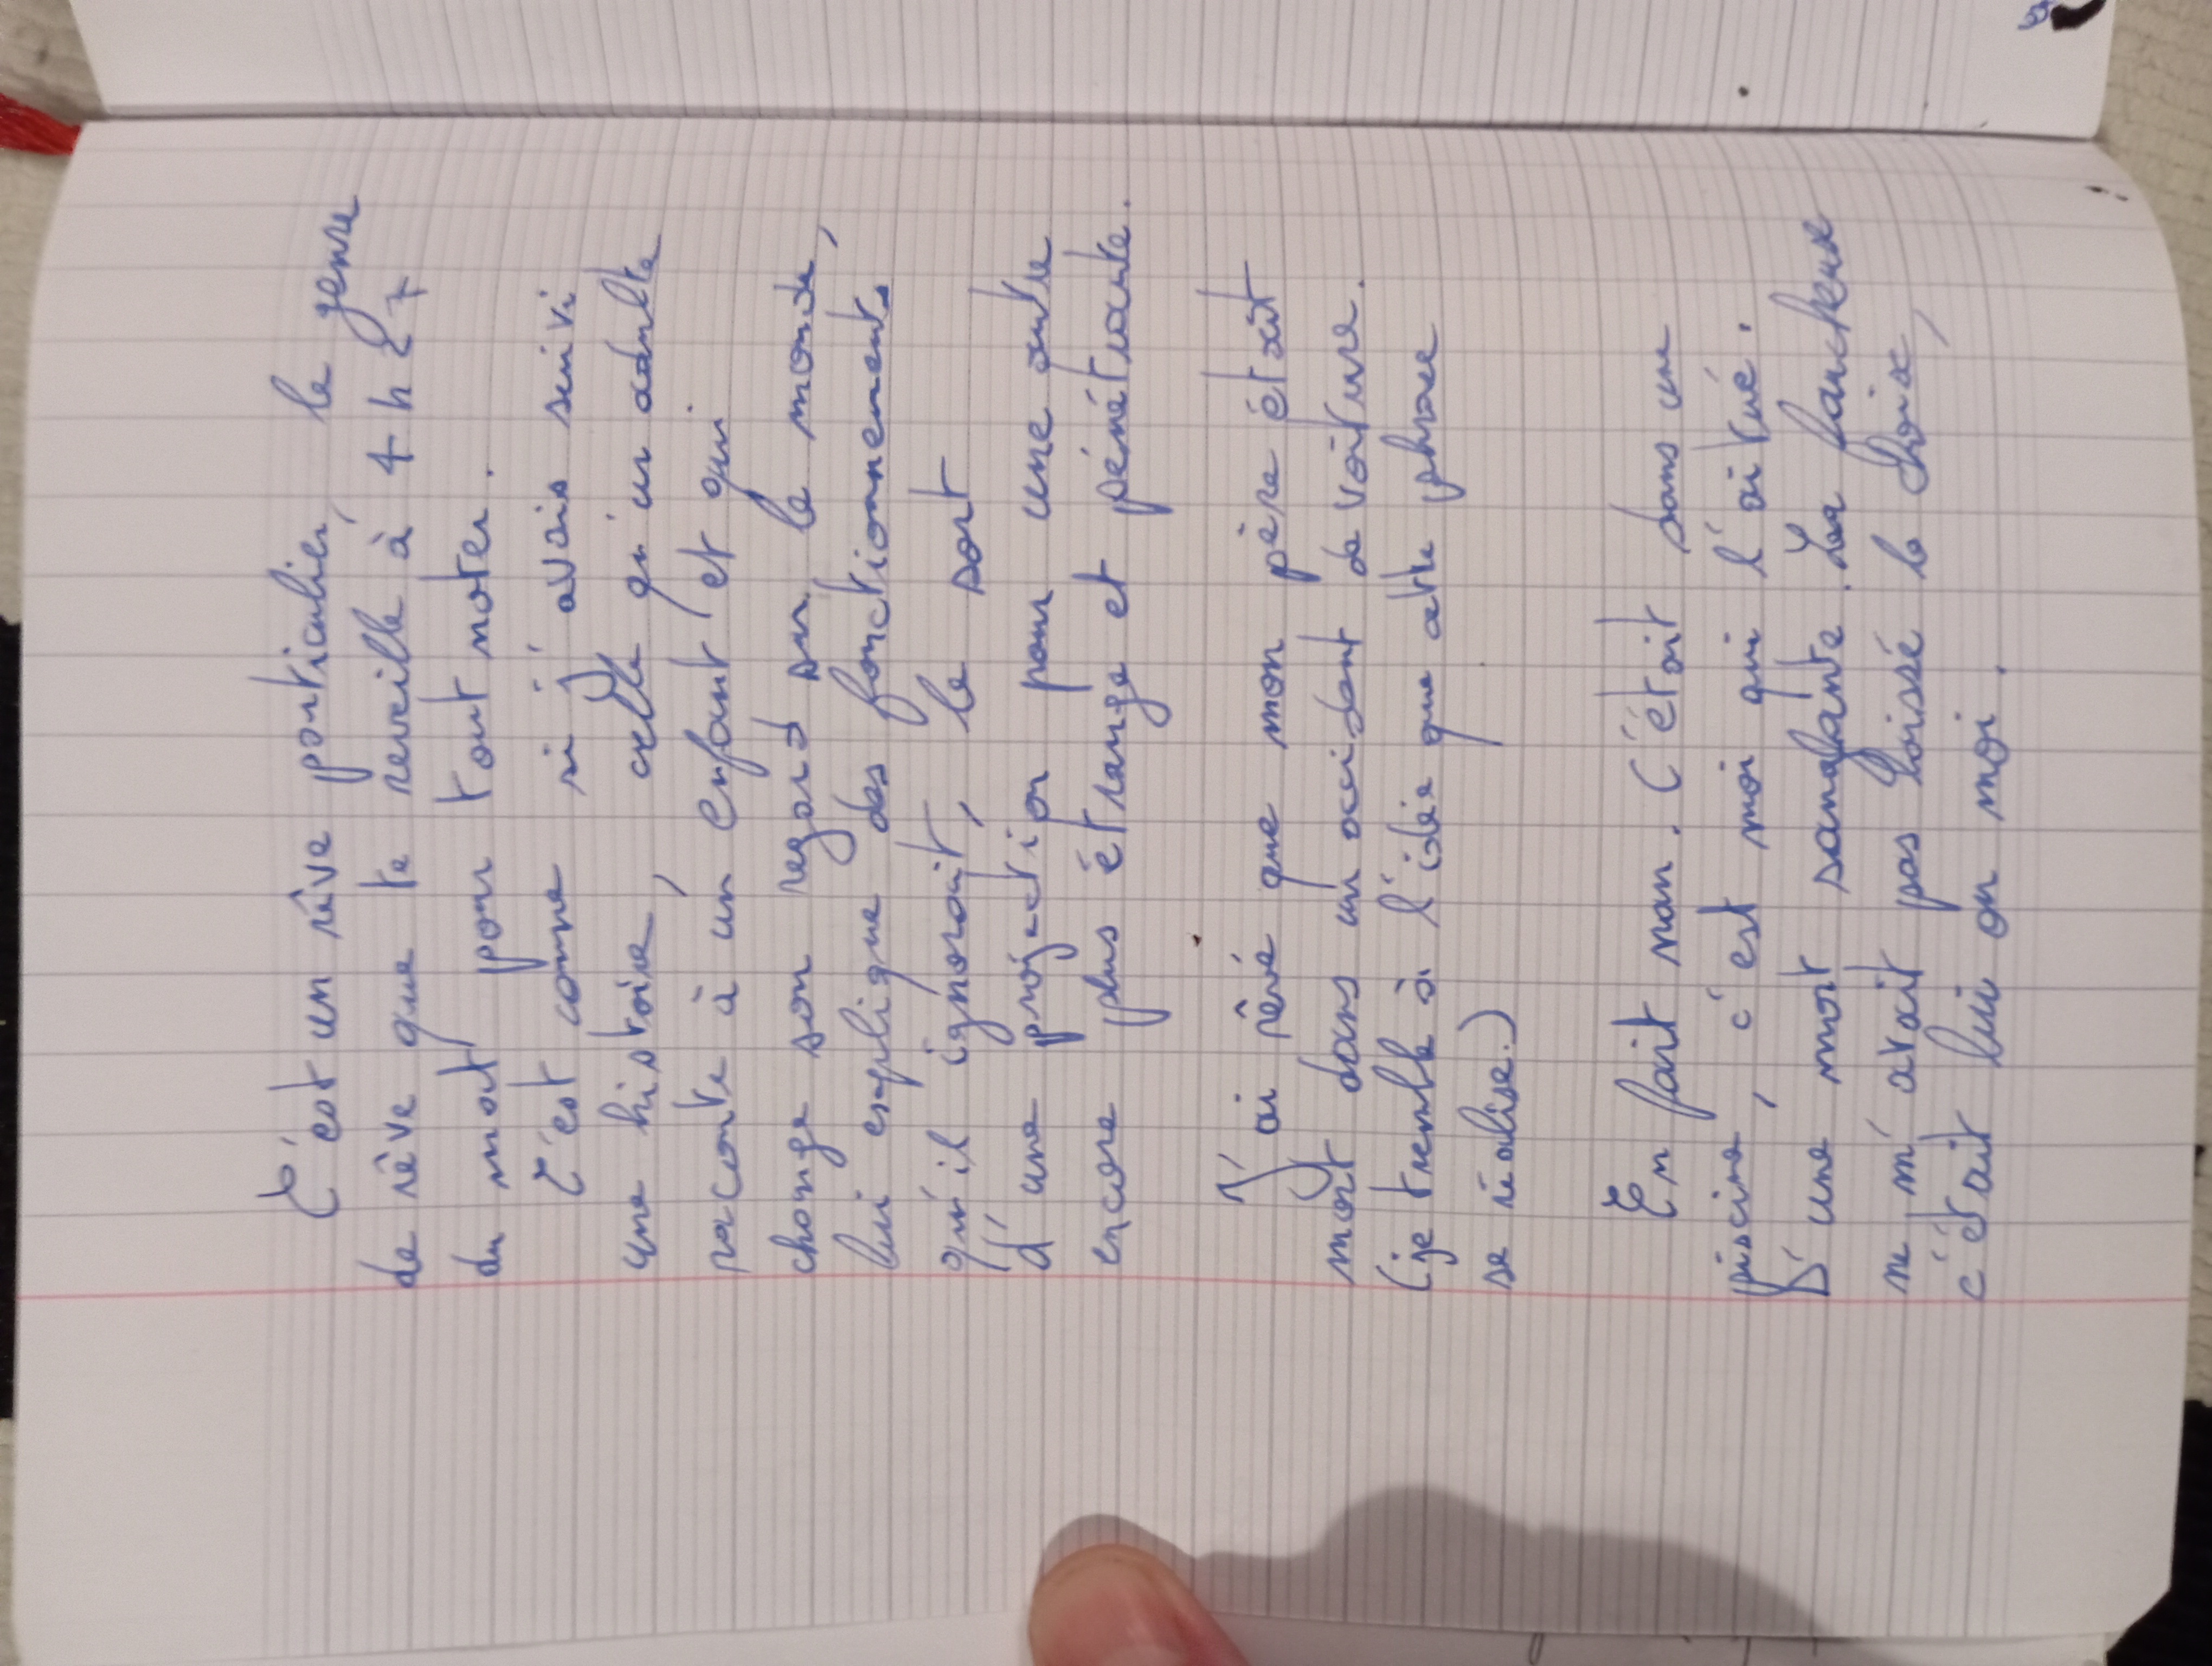 C'est un rêve particulier, le genre
de rêve que te reveille à 4h27
du mat' pour tout noter.
C'est comme si j'avais suivi
une histoire, celle qu'un adulte
raconte à un enfant et qui
change son regard sur le monde,
lui explique des fonctionnements
qu'il ignorait, le sort
d'une projection pour une autre
encore plus étrange et pénétrante.
J'ai rêvé que mon père était
mort dans un accident de voiture.
(je tremble à l'idée que cette phrase
se réalise.)
En fait non. C'était dans une
piscine, c'est moi qui l'ai tué.
D'une mort sanglante. La faucheuse
ne m'avait pas laissé le choix,
c'était lui ou moi.